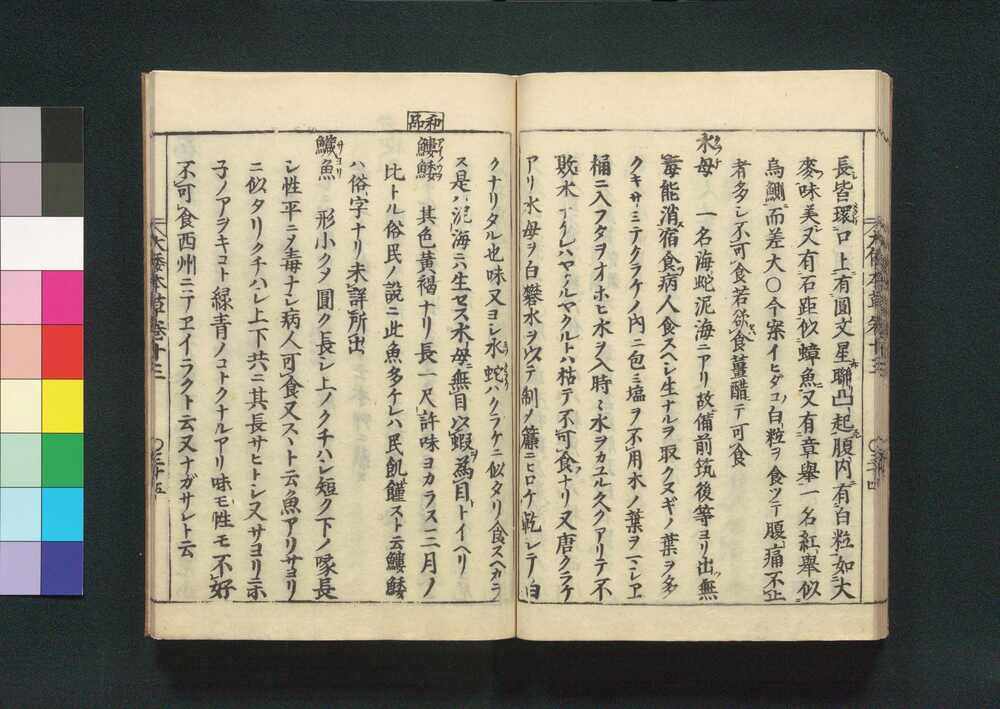 長皆環口上有圓文星聯凸起腹内有白粒如大
麥味美又有石距似蟑魚又有章舉一名紅舉似
烏鰂而差大〇今案イヒダコ白粒ヲ食ツテ腹痛不止
者多シ不可食若欲食薑醋ニテ可食
水母 一名海蛇泥海ニアリ故備前筑後等ヨリ出無
クラゲ
毒能消宿食病人食スヘシ生ナルヲ取クヌギノ葉ヲ多
クキサミテクラケノ内ニ包ミ塩ヲ不用木ノ葉ヲマシヱ
桶ニ入フタヲオホヒ水ヲ入時々水ヲカユル久クアリテ不
敗水ナケレハヤフルヤクルトハ枯テ不可食ナリ又唐クラケ
アリ水母ヲ白礬水ヲウテ制ノ簾ニヒロケ乾シテ白
クナリタル也味又ヨシ水蛇ハクラケニ似タリ食スヘカラ
ス是ハ泥海ニハ生セス水母無目以蝦為目トイヘリ
和品
鱫鯘 其色黄褐ナリ長一尺許味ヨカラス三月ノ
比トル俗民ノ説ニ此魚多ケレハ民飢饉スト云鱫鯘
ハ俗字ナリ未詳所出
鱵魚 形小クメ圓ク長シ上ノクチハシ短ク下ノ喙長
サヨリ
シ性平ニメ毒ナシ病人可食又スヽト云魚アリサヨリ
ニ似タリクチハシ上下共ニ其長サヒトシ又サヨリニ示
子ノアヲキコト緑青ノコトクナルアリ味モ性モ不好
不可食西州ニテヱイラクト云又ナガサレト云
大倭本草巻十三